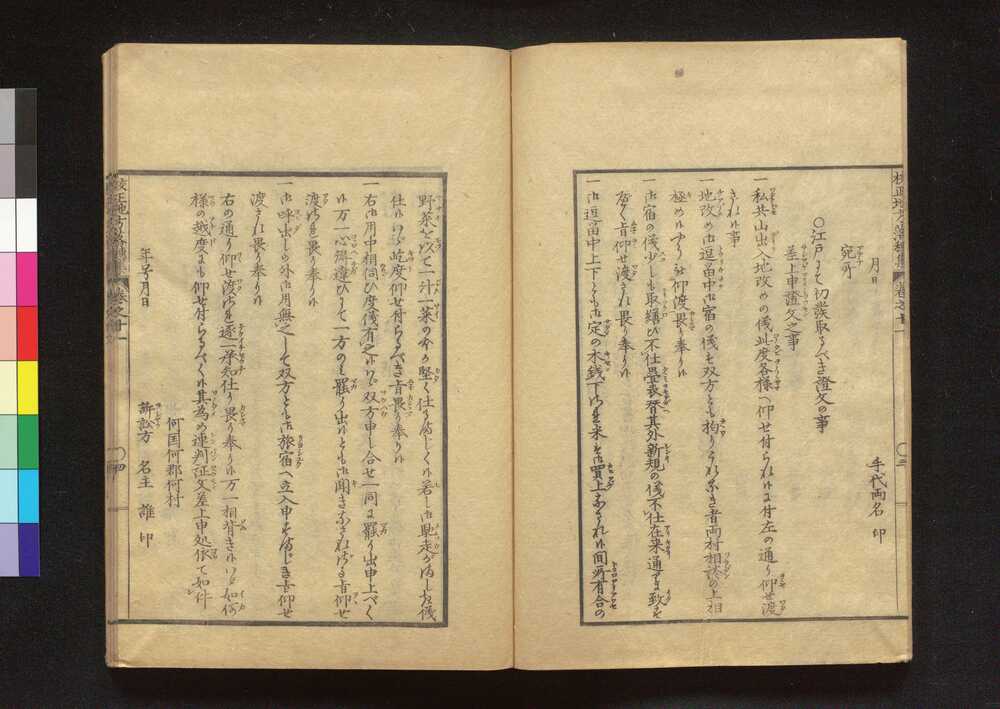 月日
宛所
手代両名 印
○江戸ゟ初発取るべき證文の事
差上申證文之事
一私共山出入地改めの儀此度各様へ仰せ付られ候に付左の通り仰せ渡
され候事
一地改め御逗留中御宿の儀も双方とも拘り者両村相談の上相
極め候やう被仰渡畏り奉り候
一御宿の儀少しも取繕ひ不仕畳表替其外新規の儀不仕在来通りに致
旨仰せ渡され畏り奉り候
一御逗留中上下とも御定の木銭下され米御買上なされ候間所有合の
野菜を以て一汁一菜の外堅く仕るまじく候若し御馳走がましき儀
仕候はゞ屹度仰せ付らるべき旨畏り奉り候
一右御用中相伺ひ度儀有之候はゞ双方申し合せ一同に罷り出申上べく
候万一心得違ひにて一方のもの罷り出候とも御聞きなされ旨仰せ
渡され畏り奉り候
一御呼出しの外御用無之して双方とも御旅宿へ立入申まじき旨仰せ
渡され畏り奉り候
右の通り仰せ渡され逐一承知仕り畏り奉り候万一相背き候はゞ如何
様の越度にも仰せ付らるべく候其為め連判証文差上申処依て如件
年号月日
何国何郡何村
訴訟方 名主 誰 印